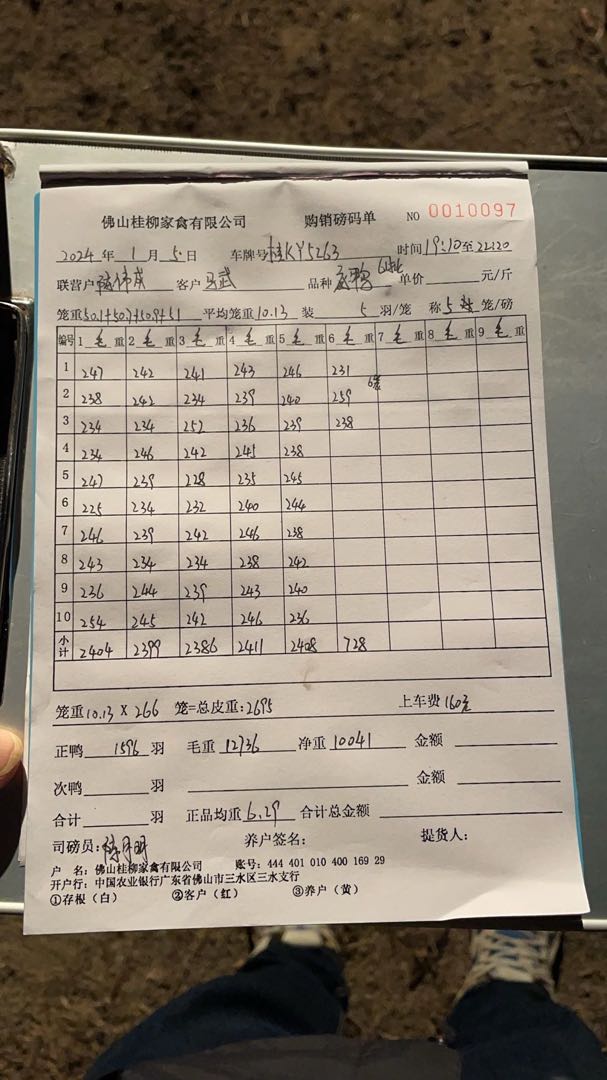 佛山桂柳家禽有限公司 购销磅码单 NO 0010097
2024年 1月 5日 车牌号 桂KY5263 时间19:10至22:20
联营户 客户 马武 品种 单价 元/斤
笼重50.1+50.7+50.9+51 平均笼重10.13 装 5 羽/笼 称 5 笼/磅
编号 1 毛 重 2 毛 重 3 毛 重 4 毛 重 5 毛 重 6 毛 重 7 毛 重 8 毛 重 9 毛 重
1 247 242 241 243 246 231
2 238 242 234 239 240 259 6笼
3 234 234 252 236 239 238
4 234 246 242 245 238
5 247 239 228 235 245
6 225 234 232 240 244
7 246 239 242 246 238
8 243 234 234 238 242
9 236 244 239 243 240
10 254 245 242 246 236
小计 2404 2399 2386 2411 2408 728
笼重10.13 X 266 笼=总皮重:2695 上车费160元
正鸭 1596 羽 毛重 12736 净重 10041 金额
次鸭 羽 金额
合计 羽 正品均重 6.29 合计总金额
司磅员: 养户签名: 提货人:
户 名: 佛山桂柳家禽有限公司 账号: 444 401 010 400 169 29
开户行: 中国农业银行广东省佛山市三水区三水支行
①存根(白) ②客户(红) ③养户(黄)